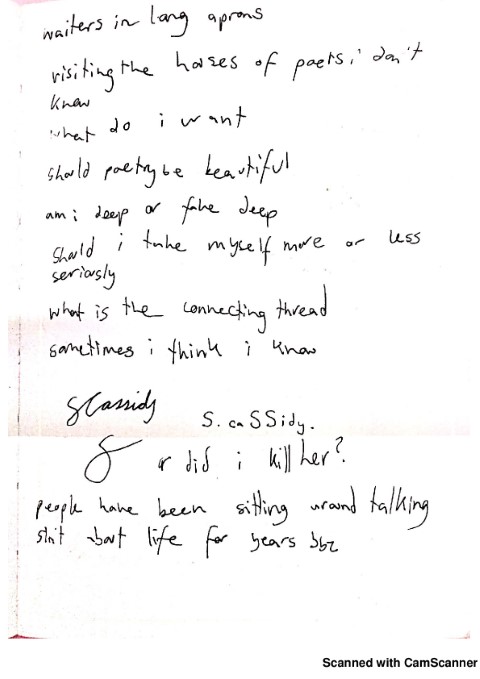 waiters in long aprons
visiting the houses of poets i don't
know
what do i want
should poetry be beautiful
am i deep or fake deep
should i take myself more or less
seriously
what is the connecting thread
sometimes i think i know
SCassidy S. caSSidy.
or did i kill her?
people have been sitting around talking
shit about life for years bbz
Scanned with CamScanner